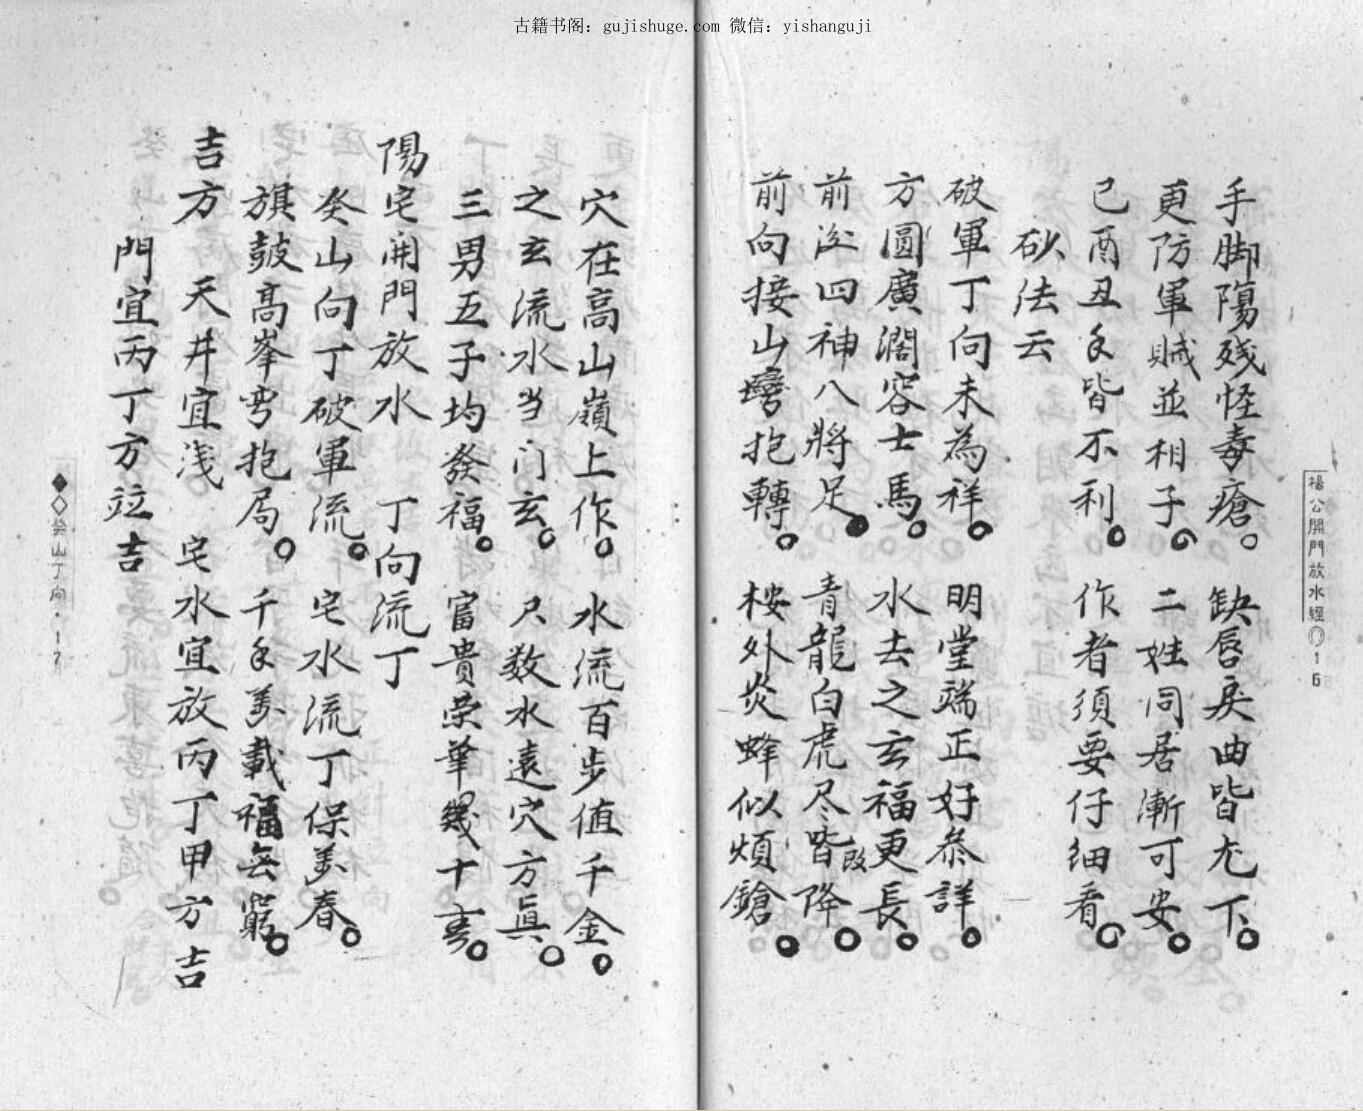 古籍书阁：gujishuge.com 微信：yishanguji
楊公開門放水經 16
手脚傷殘怪毒瘡。缺唇戾曲皆尤下。
更防軍賊並相子。二姓同居漸可安。
已酉丑年皆不利。作者須要仔細看。
砂法云
破軍丁向未為祥。明堂端正好參詳。
方圓廣濶容士馬。水去之玄福更長。
前後四神八將足。青龍白虎尽皆降。
啟
前向接山彎抱轉。桉外炎蜂似煩鎗。
穴在高山嶺上作。水流百步值千金。
之玄流水当门玄。只数水遠穴方真。
三男五子均發福。富貴榮華幾十春。
陽宅開門放水 丁向流丁
癸山向丁破軍流。宅水流丁保美春。
旗鼓高峯弯抱局。千年美載福無窮。
吉方 天井宜浅 宅水宜放丙丁甲方吉
門宜丙丁方竝吉
癸山丁向·17